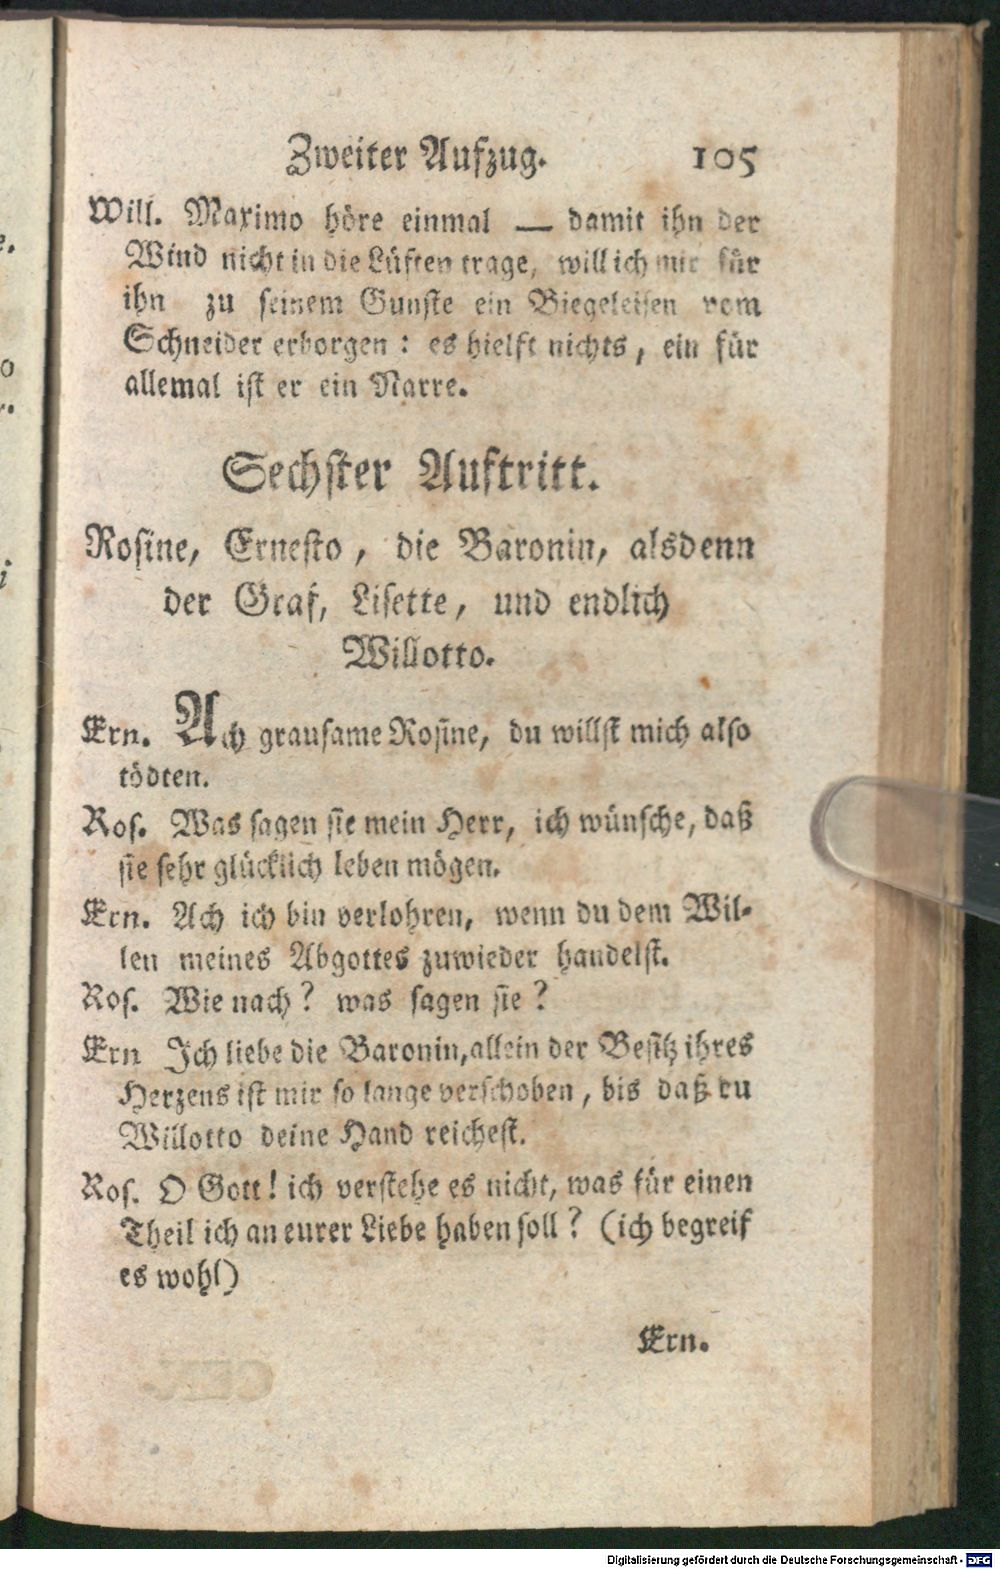 Zweiter Aufzug. 105
Will. Maximo höre einmal — damit ihn der
Wind nicht in die Lüften trage, will ich mir für
ihn zu seinem Gunste ein Biegeleisen vom
Schneider erborgen : es hielft nichts, ein für
allemal ist er ein Narre.
Sechster Auftritt.
Rosine, Ernesto, die Baronin, alsdenn
der Graf, Lisette, und endlich
Willotto.
Ern. Ach grausame Rosine, du willst mich also
tödten.
Ros. Was sagen sie mein Herr, ich wünsche, daß
sie sehr glücklich leben mögen.
Ern. Ach ich bin verlohren, wenn du dem Wil-
len meines Abgottes zuwieder handelst.
Ros. Wie nach? was sagen sie?
Ern Ich liebe die Baronin, allein der Besitz ihres
Herzens ist mir so lange verschoben, bis daß du
Willotto deine Hand reichest.
Ros. O Gott! ich verstehe es nicht, was für einen
Theil ich an eurer Liebe haben soll? (ich begreif
es wohl)
Ern.
Digitalisierung gefördert durch die Deutsche Forschungsgemeinschaft - DFG